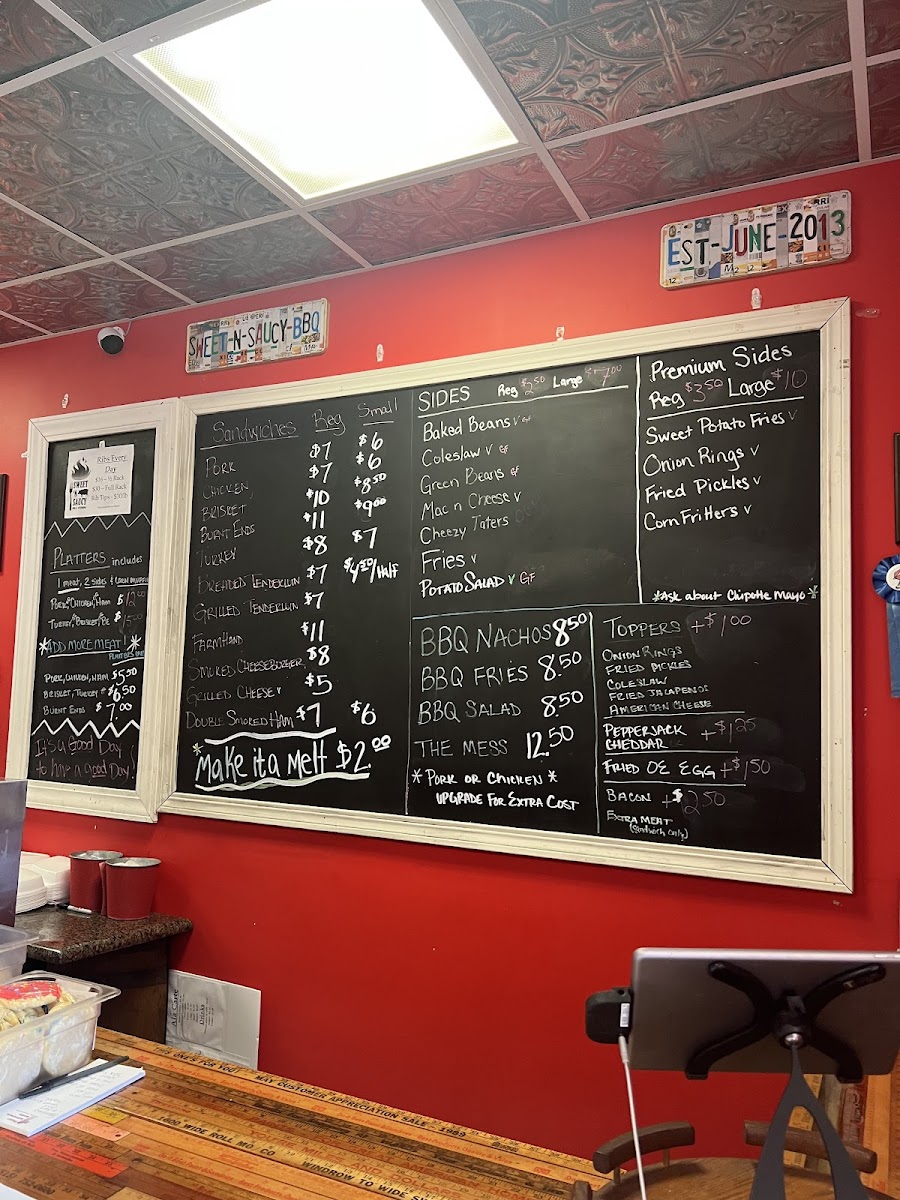 EST-JUNE-2013
SWEET-N-SAUCY-BBQ
Ribs Every
Day
$16 - ½ Rack
$30 - Full Rack
Rib Tips - $10/lb
SWEET
N
SAUCY
PLATTERS includes
1 meat, 2 sides & CORN MUFFIN
PORK, CHICKEN, HAM $12.00
TURKEY, BRISKET, BE $15.00
*ADD MORE MEAT!*
PLATTERS ONLY
PORK, CHICKEN, HAM $5.50
BRISKET, TURKEY $6.50
BURNT ENDS $7.00
It's a Good Day
to have a good Day!
Sandwiches Reg Small
PORK $7 $6
CHICKEN $7 $6
BRISKET $10 $8.50
BURNT ENDS $11 $9.00
TURKEY $8 $7
BREADED TENDERLOIN $7 $4.50/Half
GRILLED TENDERLOIN $7
FARMHAND $11
SMOKED CHEESEBURGER $8
GRILLED CHEESE V $5
DOUBLE SMOKED HAM $7 $6
*Make it a Melt $2.00
SIDES Reg $2.50 Large $7.00
Baked Beans V GF
Coleslaw V GF
Green Beans GF
Mac n Cheese V
Cheezy Taters
Fries V
POTATO SALAD V GF
Premium Sides
Reg $3.50 Large $10
Sweet Potato Fries V
Onion Rings V
Fried Pickles V
Corn Fritters V
*Ask about Chipotle Mayo*
BBQ NACHOS 8.50
BBQ FRIES 8.50
BBQ SALAD 8.50
THE MESS 12.50
* PORK OR CHICKEN *
UPGRADE FOR EXTRA COST
TOPPERS +$1.00
ONION RINGS
FRIED PICKLES
COLESLAW
FRIED JALAPENOS
AMERICAN CHEESE
PEPPERJACK
CHEDDAR +$1.25
FRIED OE EGG +$1.50
BACON +$2.50
EXTRA MEAT
(sandwich only)
Ala Carte
THIS ONE'S FOR YOU! MAY CUSTOMER APPRECIATION SALE - 1989
WINDROW TO WIDE